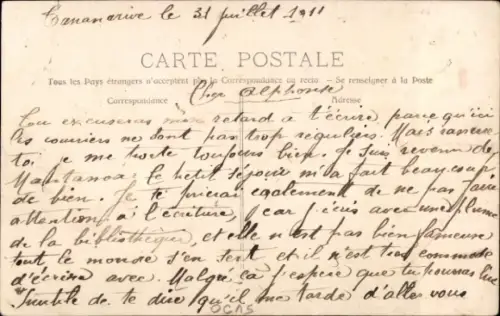 Tananarive le 31 juillet 1911
CARTE POSTALE
Tous les Pays étrangers n'acceptent pas la Correspondance au recto — Se renseigner à la Poste
Correspondance
Adresse
Cher Alphonse
Tu excuseras mon retard à t'écrire parce qu'ici
les courriers ne sont pas trop réguliers. Mais rassure
toi je me porte toujours bien. Je suis revenu de
le petit séjour m'a fait beaucoup
de bien. Je te prierai également de ne pas faire
attention à l'écriture, car j'écris avec une plume
de la bibliothèque, et elle n'est pas bien fameuse
tout le monde s'en sert et il n'est pas commode
d'écrire avec. Malgré ça j'espère que tu pourras lire
Inutile de te dire qu'il me tarde d'aller vous